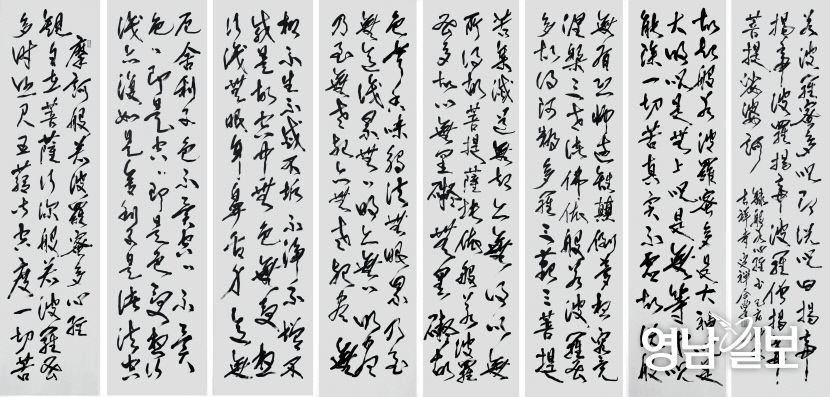 摩訶般若波羅蜜多心經
觀自在菩薩行深般若波羅蜜
多時照見五蘊皆空度一切苦
厄舍利子色不異空〻不異
色〻即是空〻即是色受想行
識亦復如是舍利子是諸法空
相不生不滅不垢不淨不增不
減是故空中無色無受想
行識無眼耳鼻舌身意無
色聲香味觸法無眼界乃至
無意識界無〻明亦無〻明盡
乃至無老死亦無老死盡無
苦集滅道無智亦無得以無
所得故菩提薩埵依般若波羅
蜜多故心無罣礙無罣礙故
無有恐怖遠離顛倒夢想究竟
涅槃三世諸佛依般若波羅蜜
多故得阿耨多羅三藐三菩提
故知般若波羅蜜多是大神咒是
大明咒是無上咒是無等等咒
能除一切苦真實不虛故說般
若波羅蜜多咒即說咒曰揭帝
揭帝波羅揭帝波羅僧揭帝
菩提薩婆訶
錄般若心經
영남일보